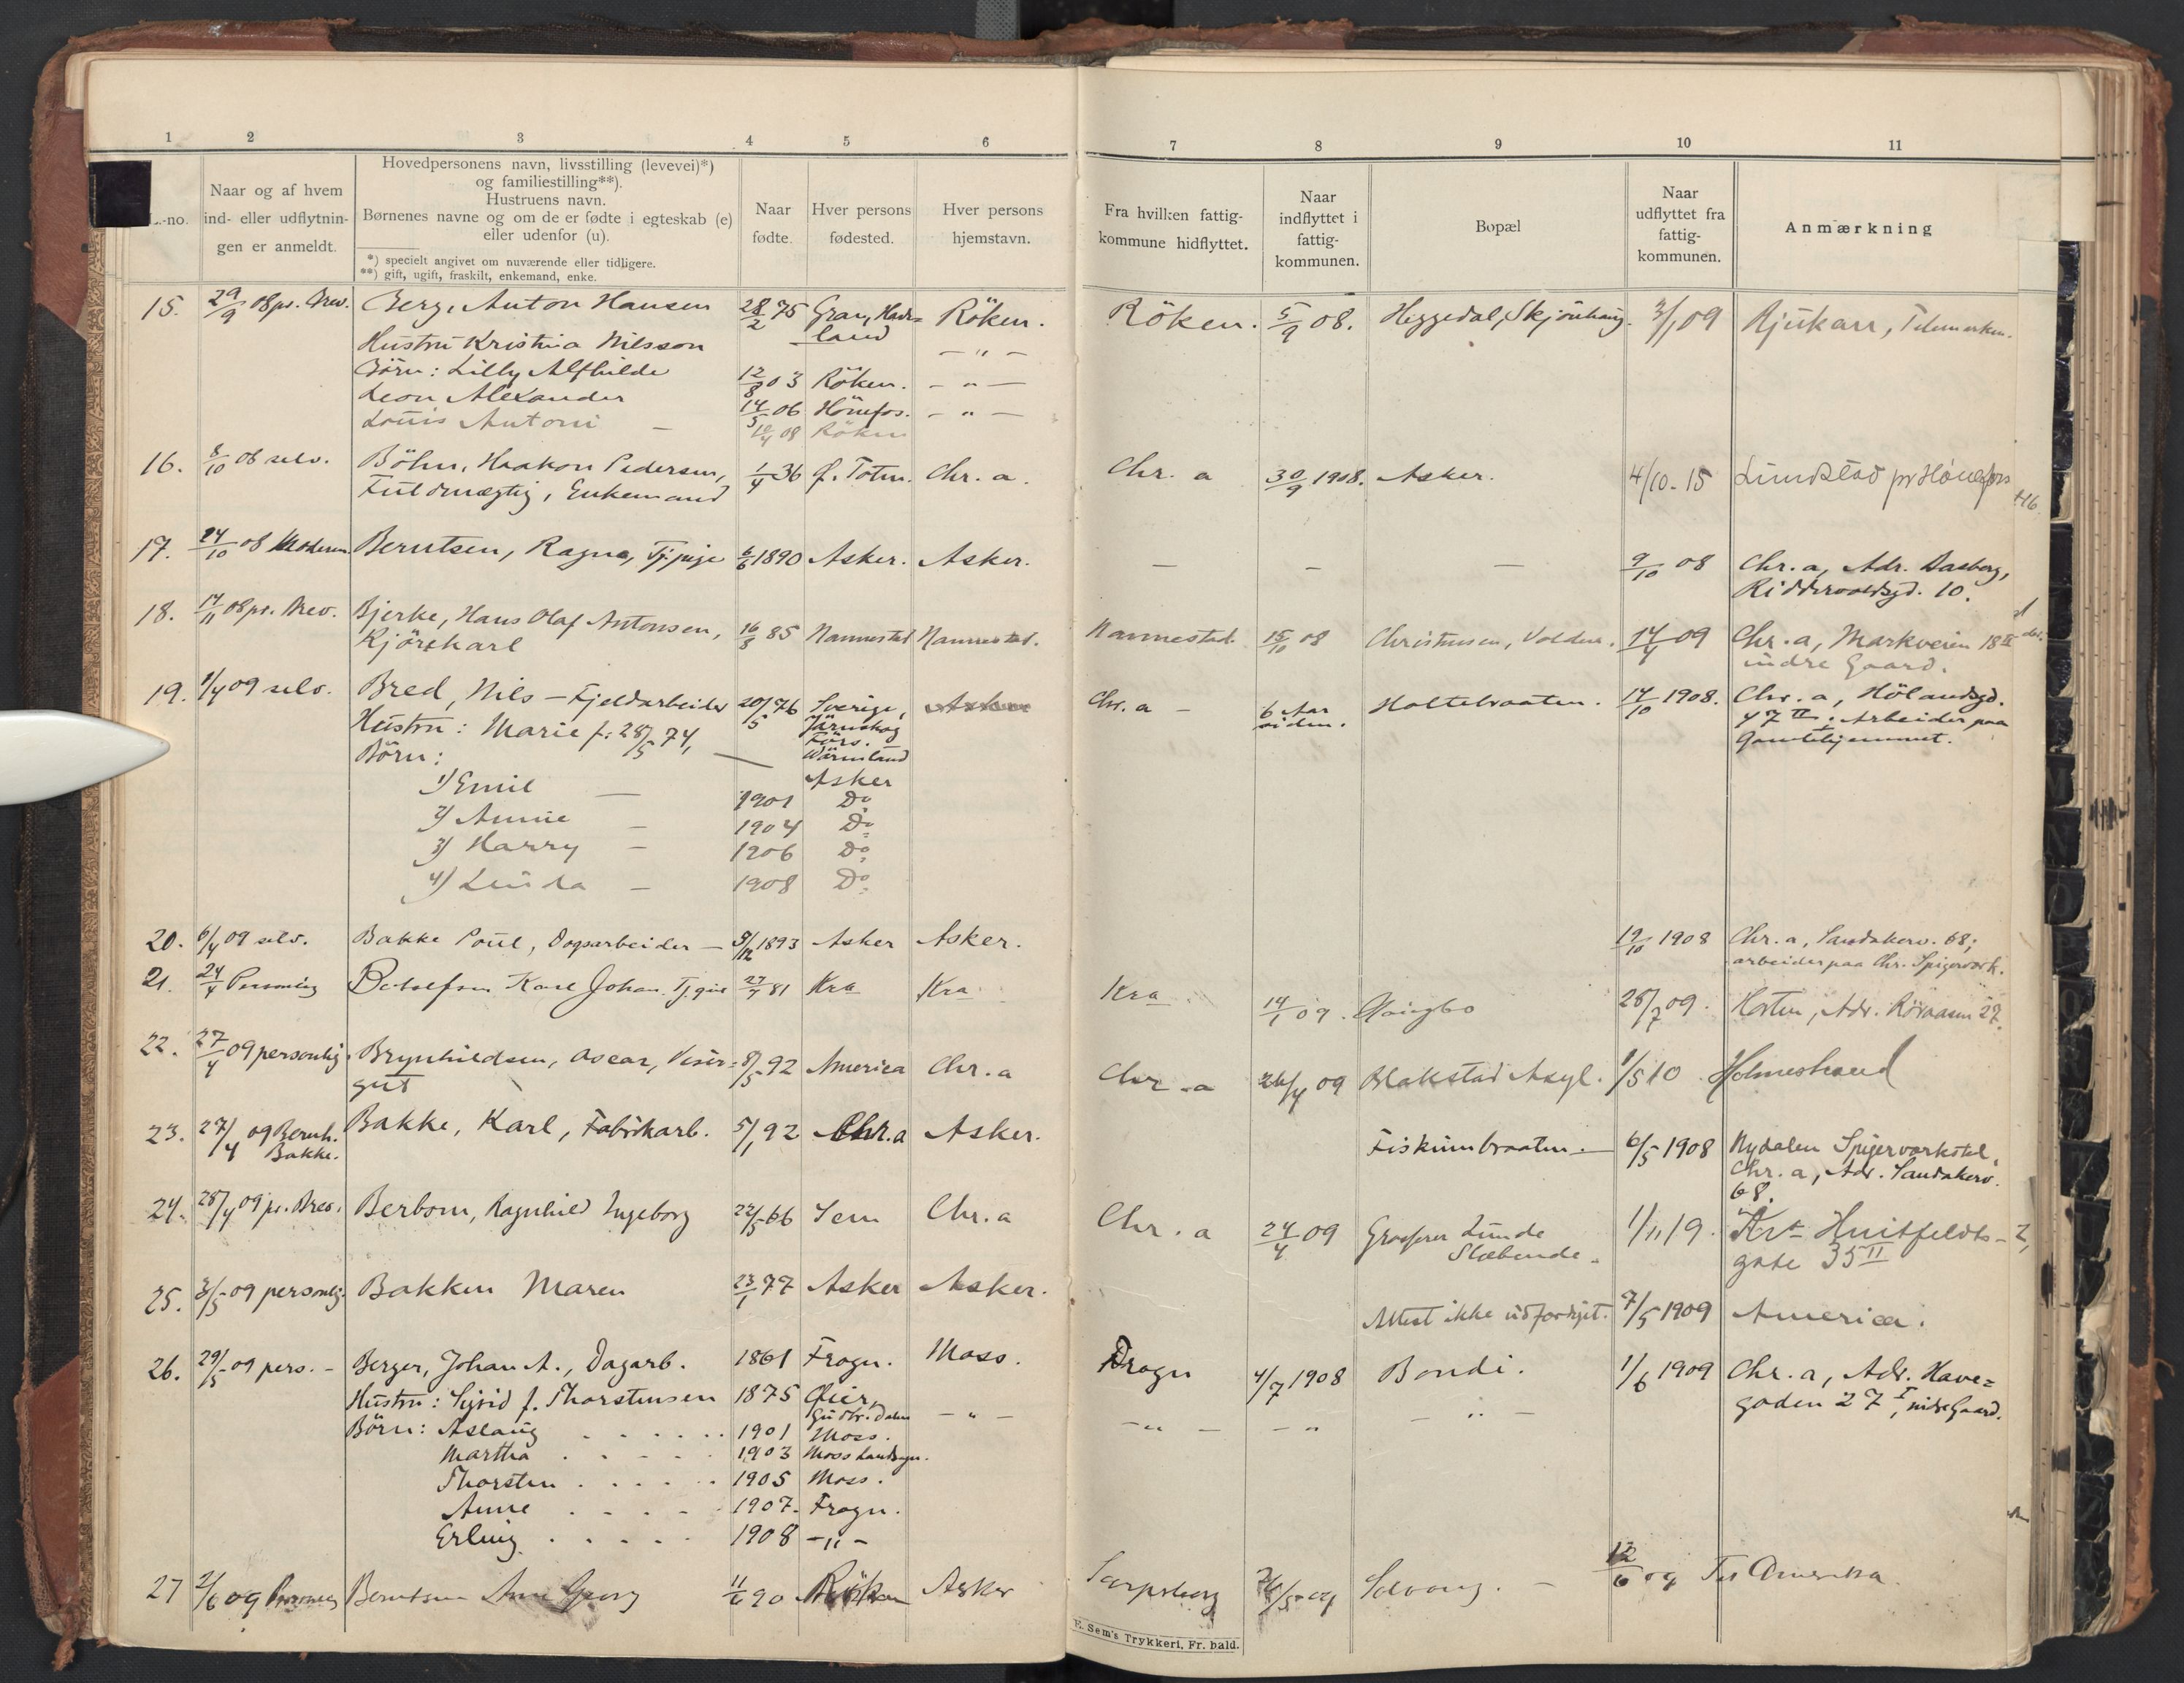 1 2 3 4 5 6 7 8 9 10 11
L.-no.
Naar og af hvem
ind- eller udflytnin-
gen er anmeldt.
Hovedpersonens navn, livsstilling (levevei)*)
og familiestilling**).
Hustruens navn.
Børnenes navne og om de er fødte i egteskab (e)
eller udenfor (u).
*) specielt angivet om nuværende eller tidligere.
**) gift, ugift, fraskilt, enkemand, enke.
Naar
fødte.
Hver persons
fødested.
Hver persons
hjemstavn.
Fra hvilken fattig-
kommune hidflyttet.
Naar
indflyttet i
fattig-
kommunen.
Bopæl
Naar
udflyttet fra
fattig-
kommunen.
Anmærkning
15. 29/9 08 pr. Brev. Berg, Anton Hansen 28/2 75 Gran, Hade= Röken. Röken. 5/9 08. Heggedal, Skjönhaug. 3/1 09 Rjukan, Telemarken.
land
Hustru Kristina Nilsson — " —
Börn: Lilly Alfhilde 12/8 03 Röken. — " —
Leon Alexander 14/5 06 Hönefos. — " —
Louis Antoni — 10/4 08 Röken
16. 8/10 08 selv. Böhn, Haakon Pedersen, 1/4 36 Ø. Toten. Chr. a. Chr. a 30/9 1908. Asker. 4/10. 15 Lundstad pr Hönefoss
Fuldmægtig, Enkemand
17. 24/10 08 Moderen Berntsen, Ragna, Tj. pige 6/6 1890 Asker. Asker. — — — 9/10 08 Chr. a, Adr. Aasberg,
Riddervoldsgd. 10.
18. 14/11 08 pr. Brev. Bjerke, Hans Olaf Antonsen, 16/8 85 Nannestad Nannestad. Nannestad. 15/10 08 Christensen, Volden. 14/4 09 Chr. a, Markveien 18 II
Kjörekarl indre Gaard.
19. 1/4 09 selv. Bred, Nils — Fjeldarbeider 20/5 76 Sverige, Asker Chr. a — 6 Aar siden. Holtebraaten. 14/10 1908. Chr. a, Hölandsgd.
Hustru: Marie f. 28/5 74, — Järnskog 47 II. Arbeider paa
Förs. Gamlehjemmet.
Wärmland
Börn: Asker
1) Emil — 1901 Do
2) Annie — 1904 Do
3) Harry — 1906 Do
4) Linda — 1908 Do
20. 6/4 09 selv. Bakke Poul, Dagsarbeider — 9/12 1893 Asker Asker. 19/10 1908 Chr. a, Sandakerv. 68;
arbeider paa Chr. Spigerverk.
21. 24/4 Personlig Karl Johan 27/4 81 Kra Kra Kra 14/1 09. 28/7 09. Horten, Adr. 27.
22. 27/4 09 personlig. Brynhildsen, Oscar, Visér= 8/5 92 America Chr. a Chr. a 26/4 09 Blakstad Asyl. 1/5 10 Holmestrand
gut
23. 27/4 09 Bernh. Bakke. Bakke, Karl, Fabrikarb. 5/1 92 Chr. a Asker. Fiskumbraaten. — 6/5 1908 Nydalen Spigerverksted,
Chr. a, Adr. Sandakerv.
68.
24. 28/4 09 pr. Brev. Berbom, Ragnhild Ingeborg 22/5 66 Sem Chr. a Chr. a 24/4 09 Grosserer Lunde 1/11 19. Huitfeldts-
Slæbende. gate 35 II
25. 3/5 09 personlig. Bakken Maren 23/1 77 Asker Asker. Attest ikke udfærdiget. 7/5 1909 America.
26. 29/5 09 pers. — Berger, Johan A., Dagarb. 1861 Frogn. Moss. Frogn 4/7 1908 Bondi. 1/6 1909 Chr. a, Adr. Have=
Hustru: Sigrid f. Thorstensen 1875 Øier, gaden 27 I, indre Gaard.
Gudbr. Dalen — " — — " — — " — " —
Börn: Aslaug . . . . . . 1901 Moss.
Martha . . . . 1903 Moss Landsogn.
Thorsten . . . . . 1905 Moss.
Anne . . . . 1907. Frogn.
Erling . . . . . 1908 — " —
27 2/6 09 Berntsen Georg 11/6 90 Röken Asker Sarpsborg Solvang. — 12/6 09 Til Amerika
E. Sem's Trykkeri, Fr.hald.